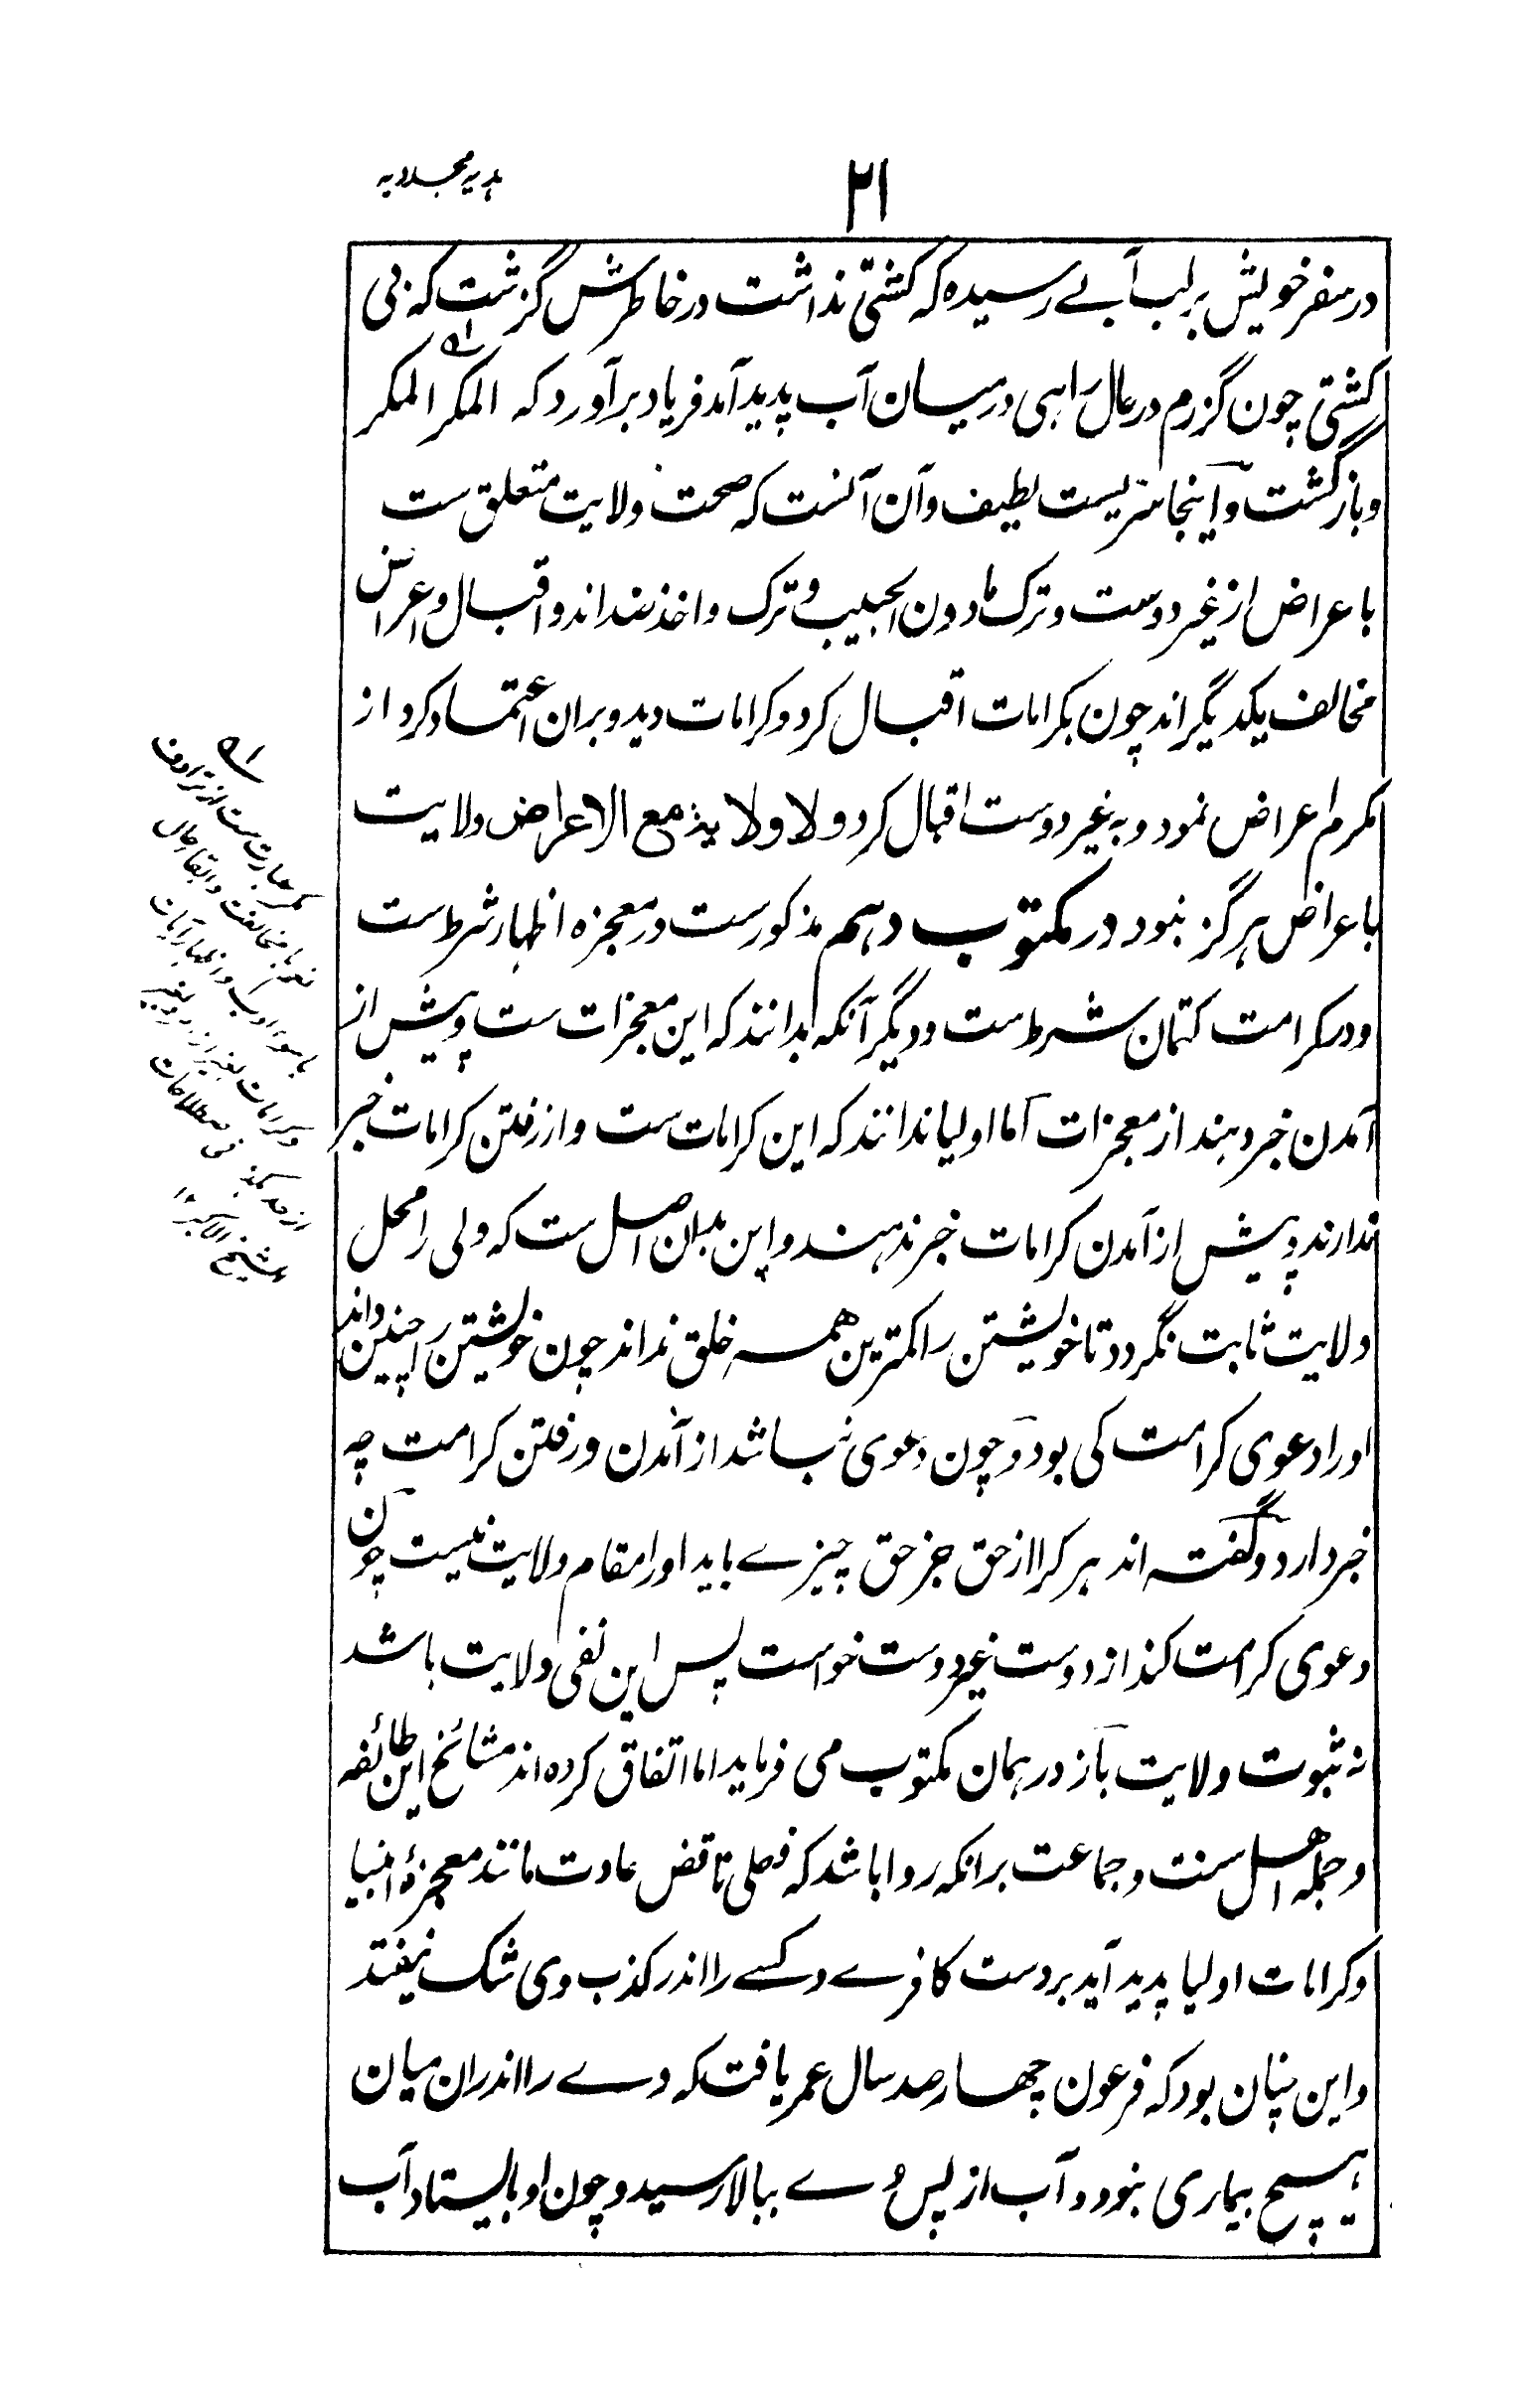 ۲۱
ہدیہ مجددیہ
در سفر خویش بر لب آبے رسیده که کشتی نداشت در خاطرش گزشت که بی
کشتی چون گزرم در حال راہی در میان آب پدید آمد فریاد برآورد که المکر المکر
و باز گشت و اینجا سریست لطیف و آن آنست که صحت ولایت متعلق ست
باعراض از غیر دوست و ترک مادون الحبیب و ترک و اخذ ضد اند و اقبال و اعراض
مخالف یکدیگر اند چون بکرامات اقبال کرد و کرامات دید و بران اعتماد کرد از
مکرم اعراض نمود و به غیر دوست اقبال کرد و لا ولایة مع الاعراض ولایت
باعراض ہرگز نبود در مکتوب دہم مذکورست در معجزه اظہار شرط ست
و در کرامت کتمان شرط ست و دیگر آنکه بدانند که این معجزات ست و پیش از
آمدن خبر دہند از معجزات اما اولیا ندانند که این کرامات ست و از رفتن کرامات خبر
ندارند و پیش از آمدن کرامات خبر ندہند و این بدان اصل ست که ولی را محل
ولایت ثابت نگردد تا خویشتن را کمترین ہمه خلق نداند چون خویشتن را چنین داند
او را دعوی کرامت کی بود و چون دعوی نباشد از آمدن و رفتن کرامت چه
خبر دارد و گفته اند ہر کرا از حق جز حق چیزے باید او را مقام ولایت نیست چون
دعوی کرامت کند از دوست غیر دوست خواست پس این نفی ولایت باشد
نه ثبوت ولایت باز در ہمان مکتوب می فرماید اما اتفاق کرده اند مشائخ این طائفه
و جمله اہل سنت و جماعت برانکه روا باشد که فعلی ناقض عادت مانند معجزهٔ انبیا
و کرامات اولیا پدید آید بر دست کافرے و کسے را اندر کذب وی شک نیفتد
و این چنان بود که فرعون چهارصد سال عمر یافت که وے را اندران میان
ہیچ بیماری نبود و آب از پس وے ببالا رسید و چون او بایستاد آب
مکر عبارت ست از ترادف
نعم با مخالفت و ابقاء حال
با سوء ادب و اظہار آیات
و کرامات بغیر از
از حد کذا فی اصطلاحات
الشیخ الاکبر ۱۲